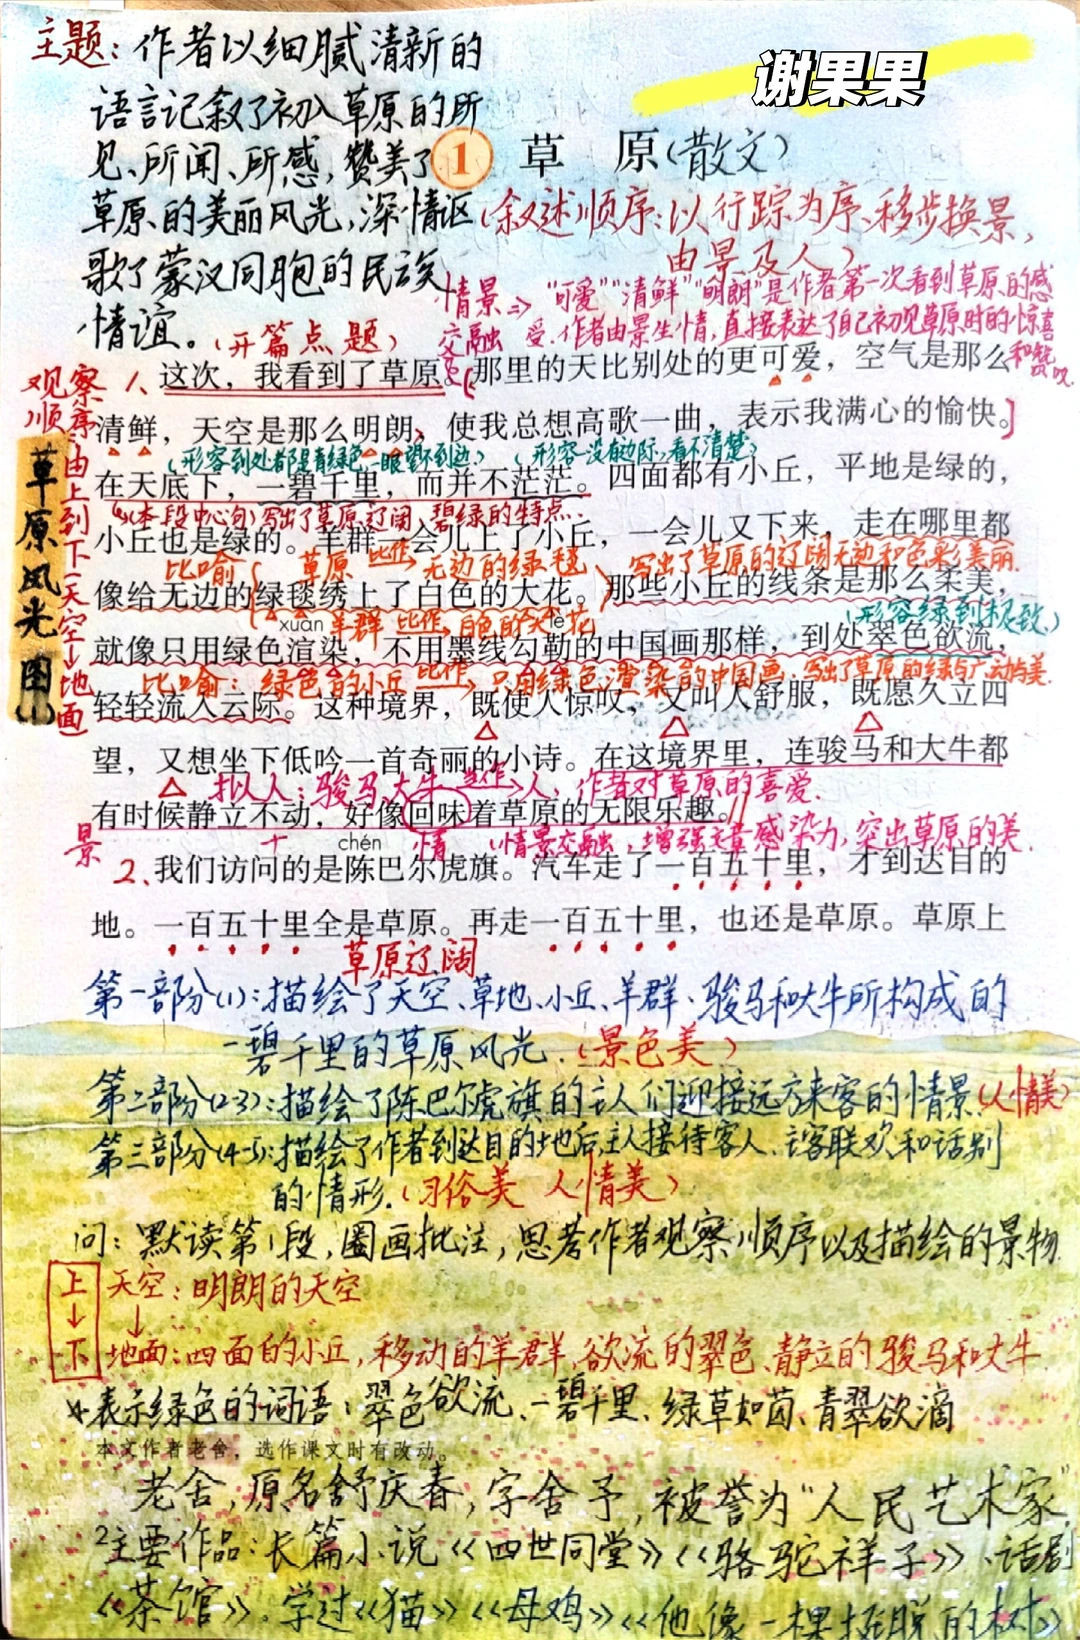 谢果果
主题：作者以细腻清新的
语言记叙了初入草原的所
见、所闻、所感，赞美了
草原的美丽风光，深情讴
歌了蒙汉同胞的民族
情谊。
1 草 原（散文）
（叙述顺序：以行踪为序、移步换景，
由景及人）
情景⇒“可爱”“清鲜”“明朗”是作者第一次看到草原的感
交融 受.作者由景生情，直接表达了自己初见草原时的惊喜
和赞叹.
（开篇点题）
观察
顺序：由上到下（天空→地面
草原风光图（1）
1、这次，我看到了草原。那里的天比别处的更可爱，空气是那么
清鲜，天空是那么明朗，使我总想高歌一曲，表示我满心的愉快。
（形容到处都是青绿色，一眼望不到边.）（形容一没有边际，看不清楚）
在天底下，一碧千里，而并不茫茫。四面都有小丘，平地是绿的，
（本段中心句）写出了草原辽阔、碧绿的特点.
小丘也是绿的。羊群一会儿上了小丘，一会儿又下来，走在哪里都
比喻 草原 比作 无边的绿毯 写出了草原的辽阔无边和色彩美丽.
像给无边的绿毯绣上了白色的大花。那些小丘的线条是那么柔美，
羊群 比作 白色的大花 （形容绿到极致.）
xuàn lè
就像只用绿色渲染，不用墨线勾勒的中国画那样，到处翠色欲流，
比喻：绿色的小丘 比作 只用绿色渲染的中国画.写出了草原的绿与广动与美.
轻轻流入云际。这种境界，既使人惊叹，又叫人舒服，既愿久立四
望，又想坐下低吟一首奇丽的小诗。在这境界里，连骏马和大牛都
拟人：骏马大牛 当作 人，作者对草原的喜爱.
有时候静立不动，好像回味着草原的无限乐趣。
景 + 情 （情景交融，增强文章感染力，突出草原的美.
chén
2、我们访问的是陈巴尔虎旗。汽车走了一百五十里，才到达目的
地。一百五十里全是草原。再走一百五十里，也还是草原。草原上
草原辽阔
第一部分（1）：描绘了天空、草地、小丘、羊群、骏马和大牛所构成的
一碧千里的草原风光.（景色美）
第二部分（2-3）：描绘了陈巴尔虎旗的主人们迎接远方来客的情景.（人情美）
第三部分（4-5）：描绘了作者到达目的地后，主人接待客人、主客联欢和话别
的情形.（习俗美 人情美）
问：默读第1段，圈画批注，思考作者观察顺序以及描绘的景物.
上 天空：明朗的天空
↓ ↓
下 地面：四面的小丘，移动的羊群、欲流的翠色、静立的骏马和大牛.
表示绿色的词语：翠色欲流、一碧千里、绿草如茵、青翠欲滴
本文作者老舍，选作课文时有改动。
老舍，原名舒庆春，字舍予，被誉为“人民艺术家”，
2主要作品：长篇小说《四世同堂》《骆驼祥子》、话剧
《茶馆》。学过《猫》《母鸡》《他像一棵挺脱的树》